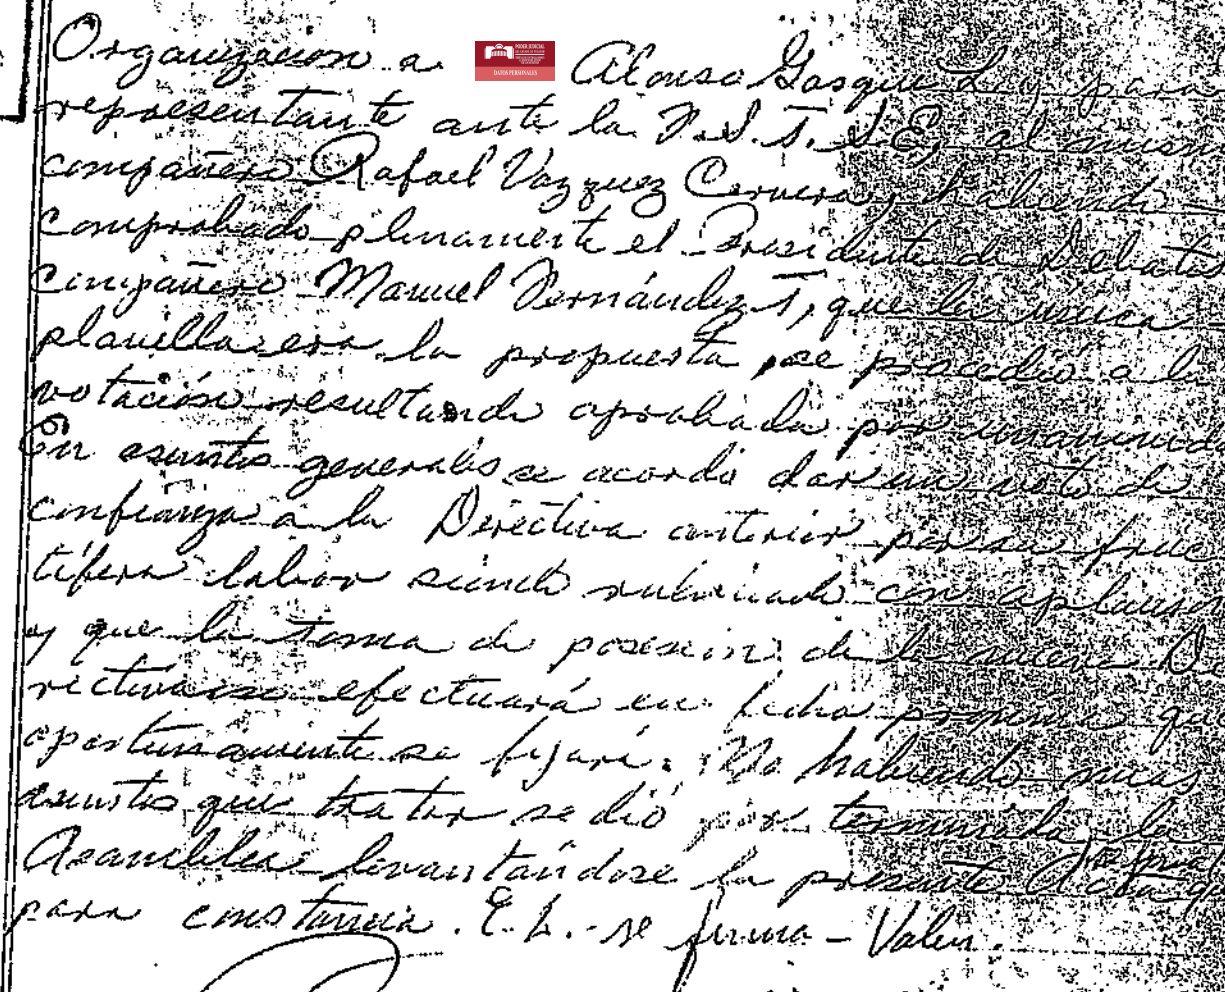 Organización a PODER JUDICIAL DATOS PERSONALES Alonso Gasque L. y para
representante ante la F.S.T.S.E, al mismo
compañero Rafael Vázquez Cervera, habiendo
comprobado plenamente el Presidente de Debates
Compañero Manuel Fernández T, que la única
planilla era la propuesta, se procedió a la
votación resultando aprobada por unanimida
En asuntos generales se acordó dar un voto de
confianza a la Directiva anterior por su fruc
tífera labor siendo rubricado con aplausos
y que la toma de posesión de la nueva Di
rectiva se efectuará en fecha próxima que
oportunamente se fijará. No habiendo mas
asuntos que tratar se dió por terminada la
Asamblea levantándose la presente Acta q
para constancia. E. L. - se firma - Valen.